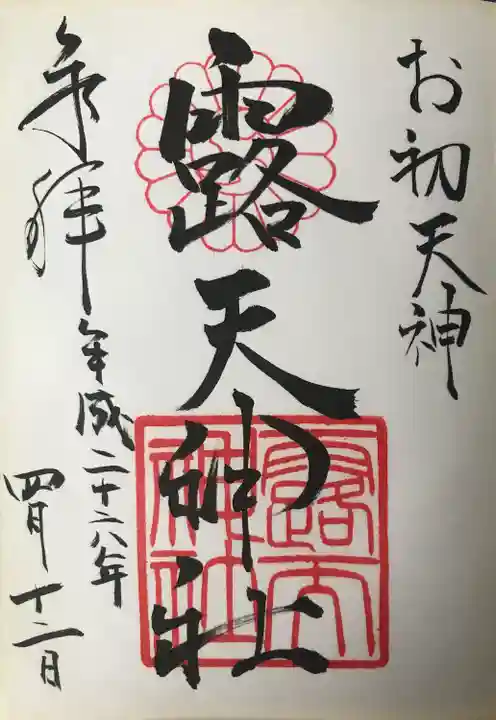 お初天神
露天神社
露天
神社
参拝
平成二十六年
四月十二日